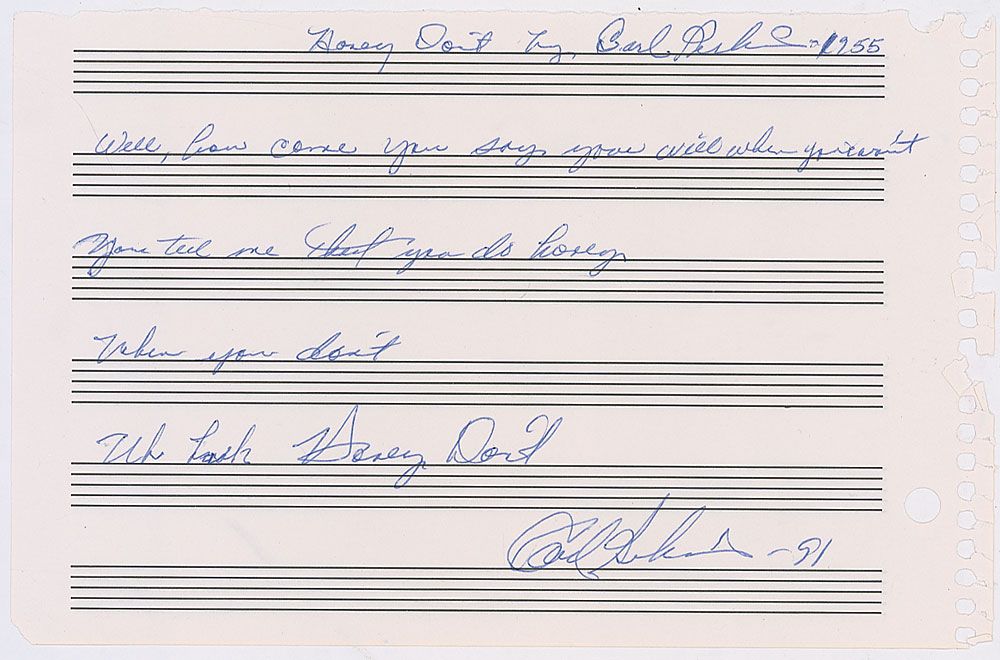 Honey Don't by, Carl Perkins - 1955
Well, how come you say you will when you won't
You tell me that you do honey
When you don't
Uh huh Honey Don't
Carl Perkins - 91